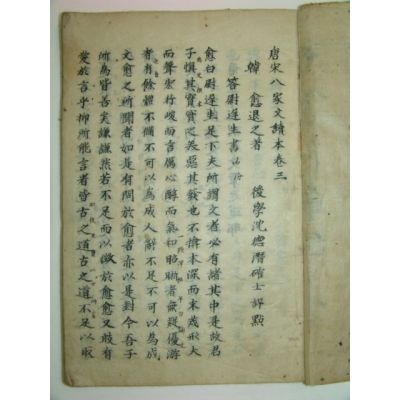 唐宋八家文讀本卷三
韓愈退之著 後學沈德潛確士評點
答尉遲生書
愈白尉遲生足下夫所謂文者必有諸其中是故君
子慎其實實之美惡其發也不揜本深而末茂形大
而聲宏行峻而言厲心醇而氣和昭晰者無疑優游
者有餘體不備不可以為成人辭不足不可以為成
文愈之所聞者如是有問於愈者亦以是對今吾子
所為皆善矣謙謙然若不足而以徵於愈愈又敢有
愛於言乎抑所能言者皆古之道古之道不足以取